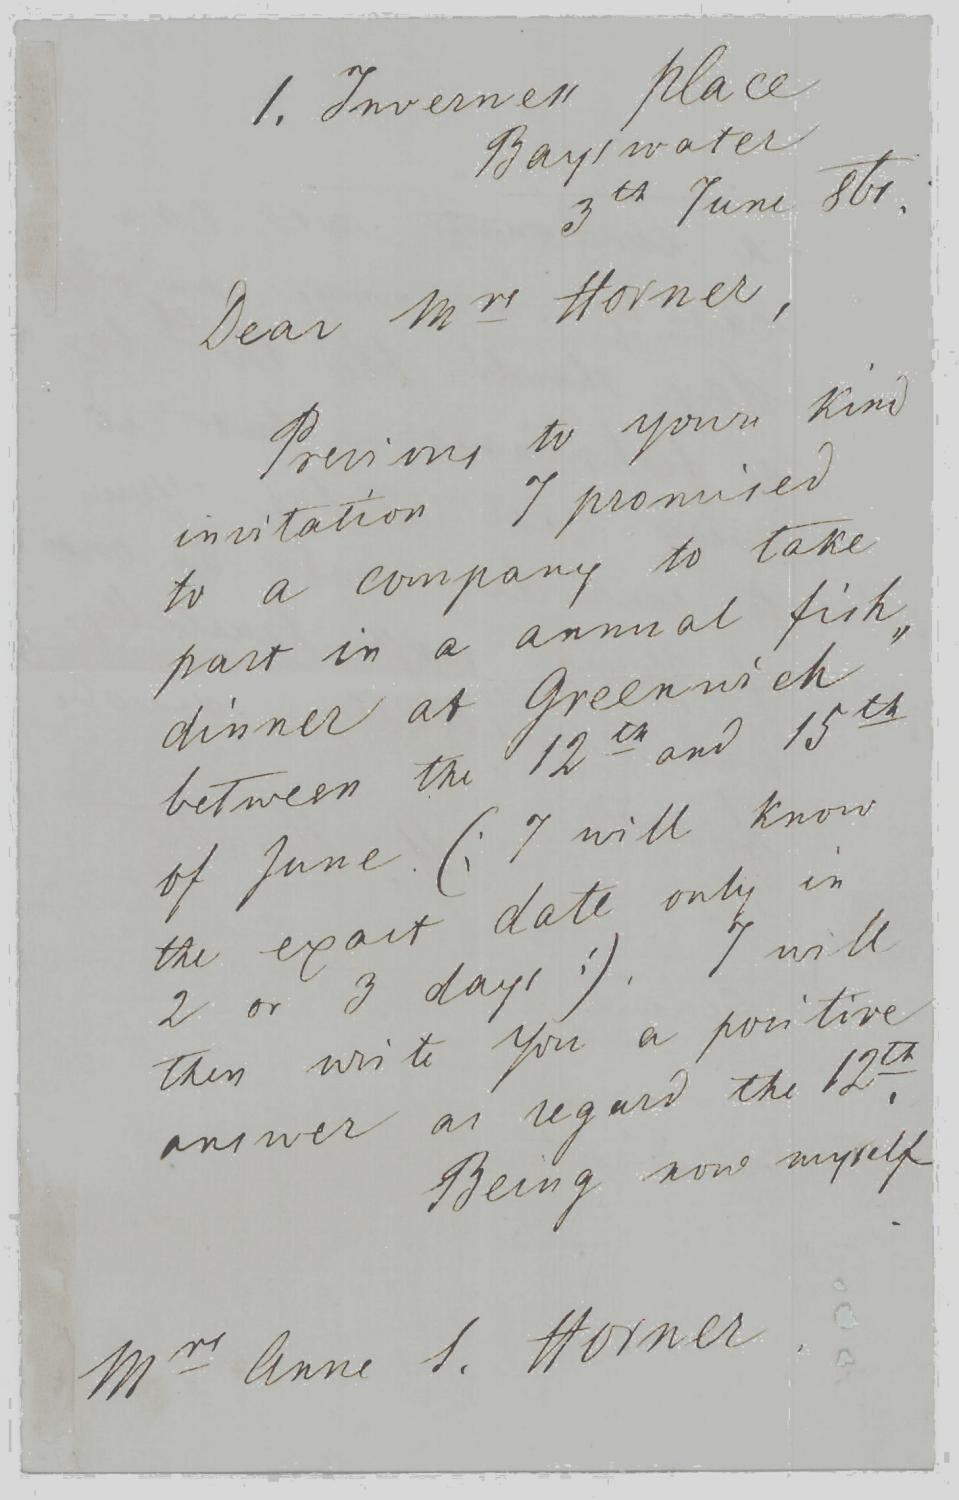 1. Inverness place
Bayswater
3th June 861.
Dear Mrs Horner,
Previous to youre kind
invitation I promised
to a company to take
part in a annual fish„
dinner at Greenwich
between the 12th and 15th
of June. (: I will know
the exact date only in
2 or 3 days :). I will
then write you a positive
answer as regard the 12th.
Being now myself
Mrs Anne S. Horner.